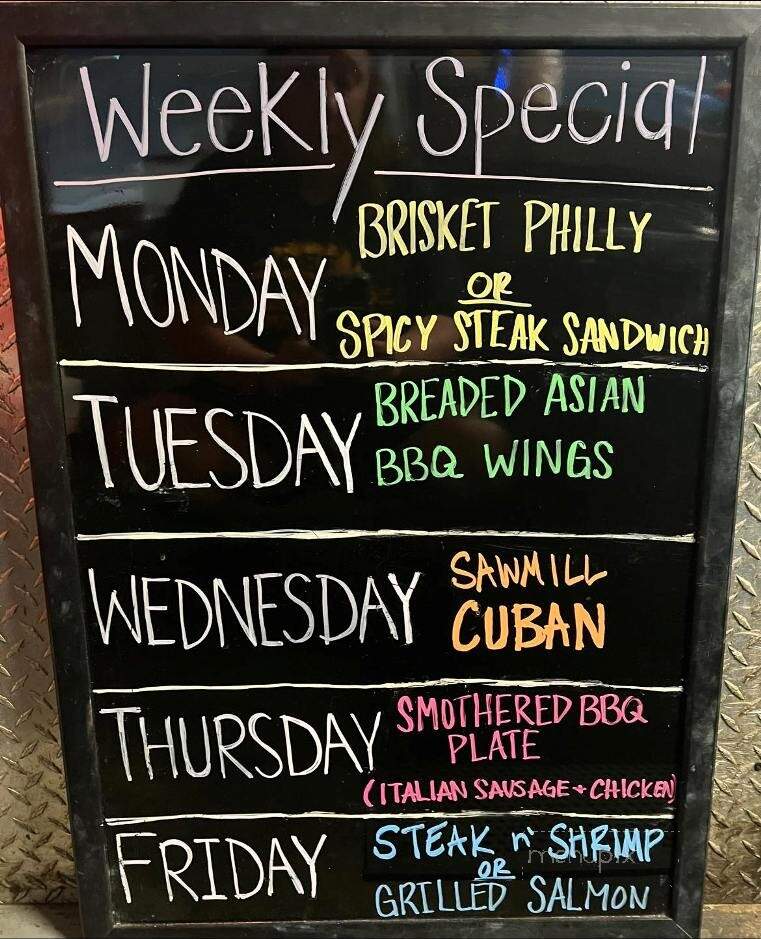 Weekly Special
MONDAY
BRISKET PHILLY
OR
SPICY STEAK SANDWICH
TUESDAY
BREADED ASIAN
BBQ WINGS
WEDNESDAY
SAWMILL
CUBAN
THURSDAY
SMOTHERED BBQ
PLATE
(ITALIAN SAUSAGE + CHICKEN)
FRIDAY
STEAK n' SHRIMP
OR
GRILLED SALMON
menupix